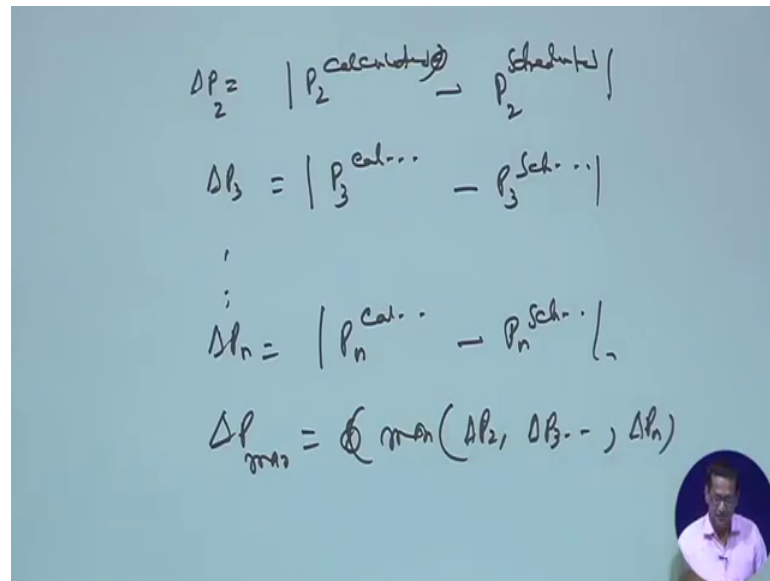 ΔP₂ = |P₂^calculated − P₂^scheduled|
ΔP₃ = |P₃^cal... − P₃^sch...|
:
ΔPₙ = |Pₙ^cal.. − Pₙ^sch..|
ΔP_max = max(ΔP₂, ΔP₃--, ΔPₙ)